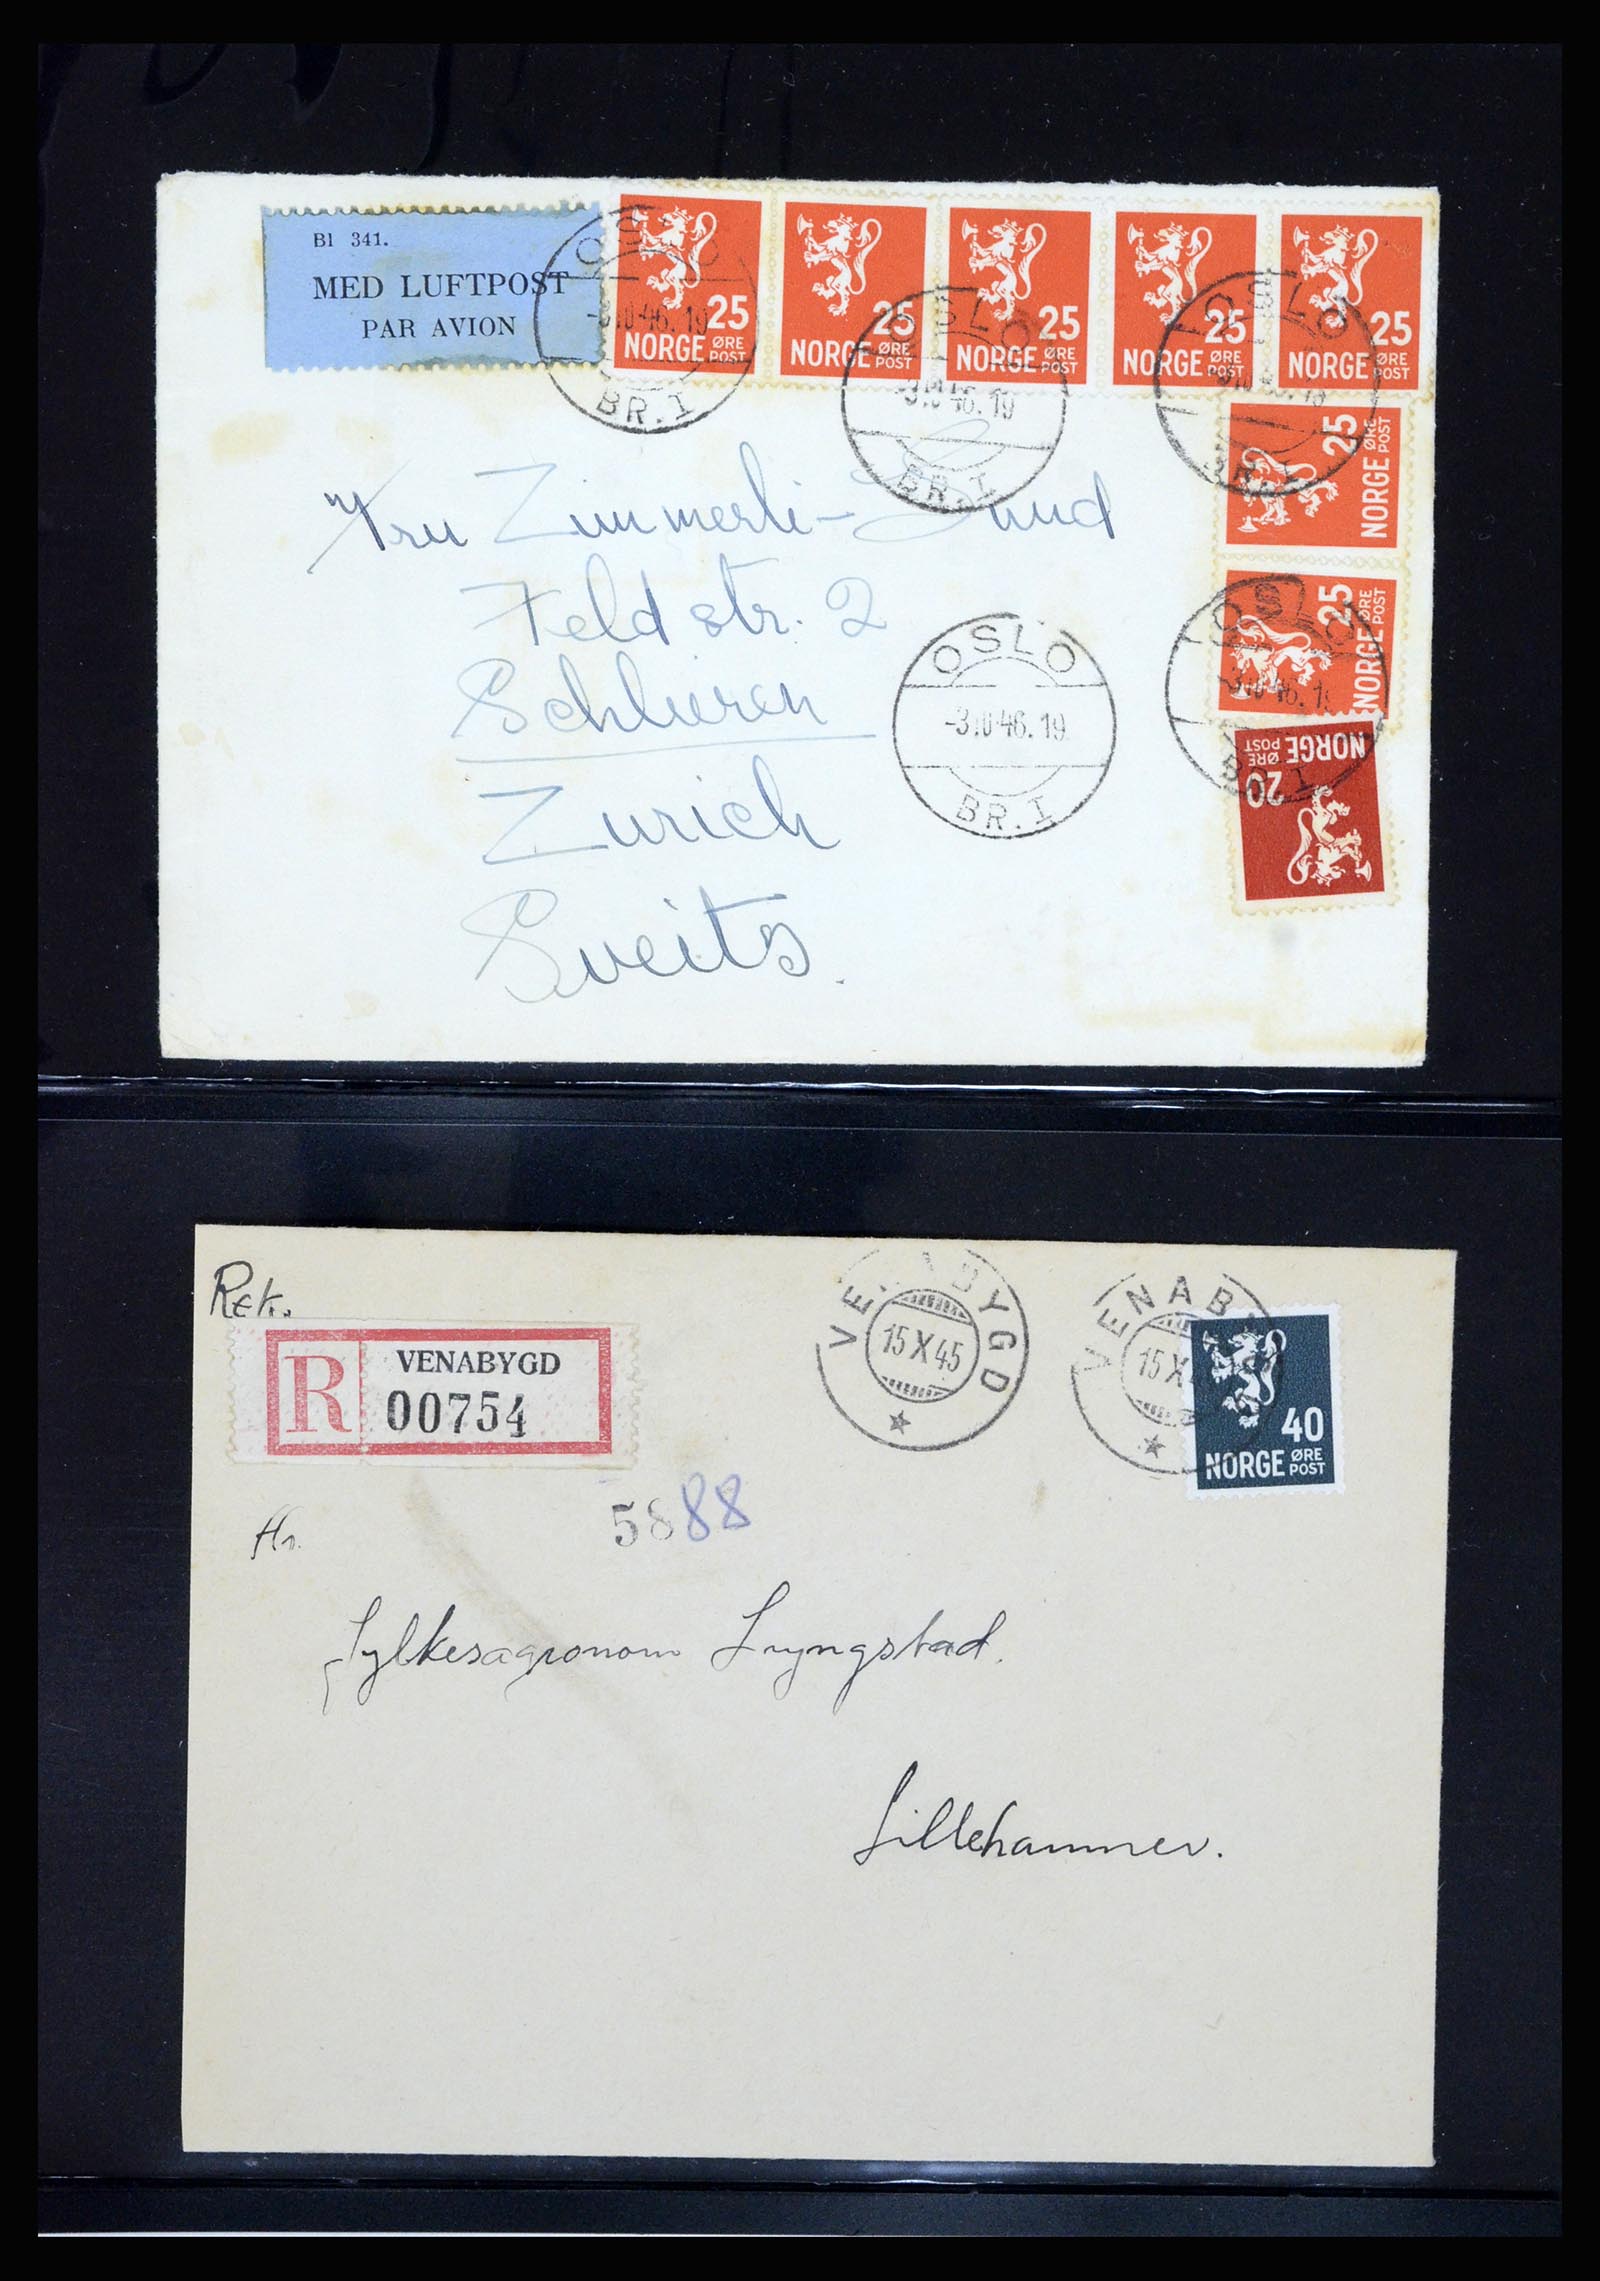 Bl 341.
MED LUFTPOST
PAR AVION
25
NORGE ØRE POST
25
NORGE ØRE POST
25
NORGE ØRE POST
25
NORGE ØRE POST
25
NORGE ØRE POST
OSLO
-3.10.46.19
BR.I
OSLO
-3.10.46.19
BR.I
OSLO
BR.I
25
NORGE ØRE POST
25
NORGE ØRE POST
20
NORGE ØRE POST
OSLO
BR.I
Fru Zimmerli-Sund
Feldstr. 2
Schlieren
Zurich
Sveits.
OSLO
-3.10.46.19
BR.I
Rek.
R
VENABYGD
00754
VENABYGD
15 X 45
VENABYGD
15 X
40
NORGE ØRE POST
5888
Hr.
Fylkesagronom Lyngstad.
Lillehammer.